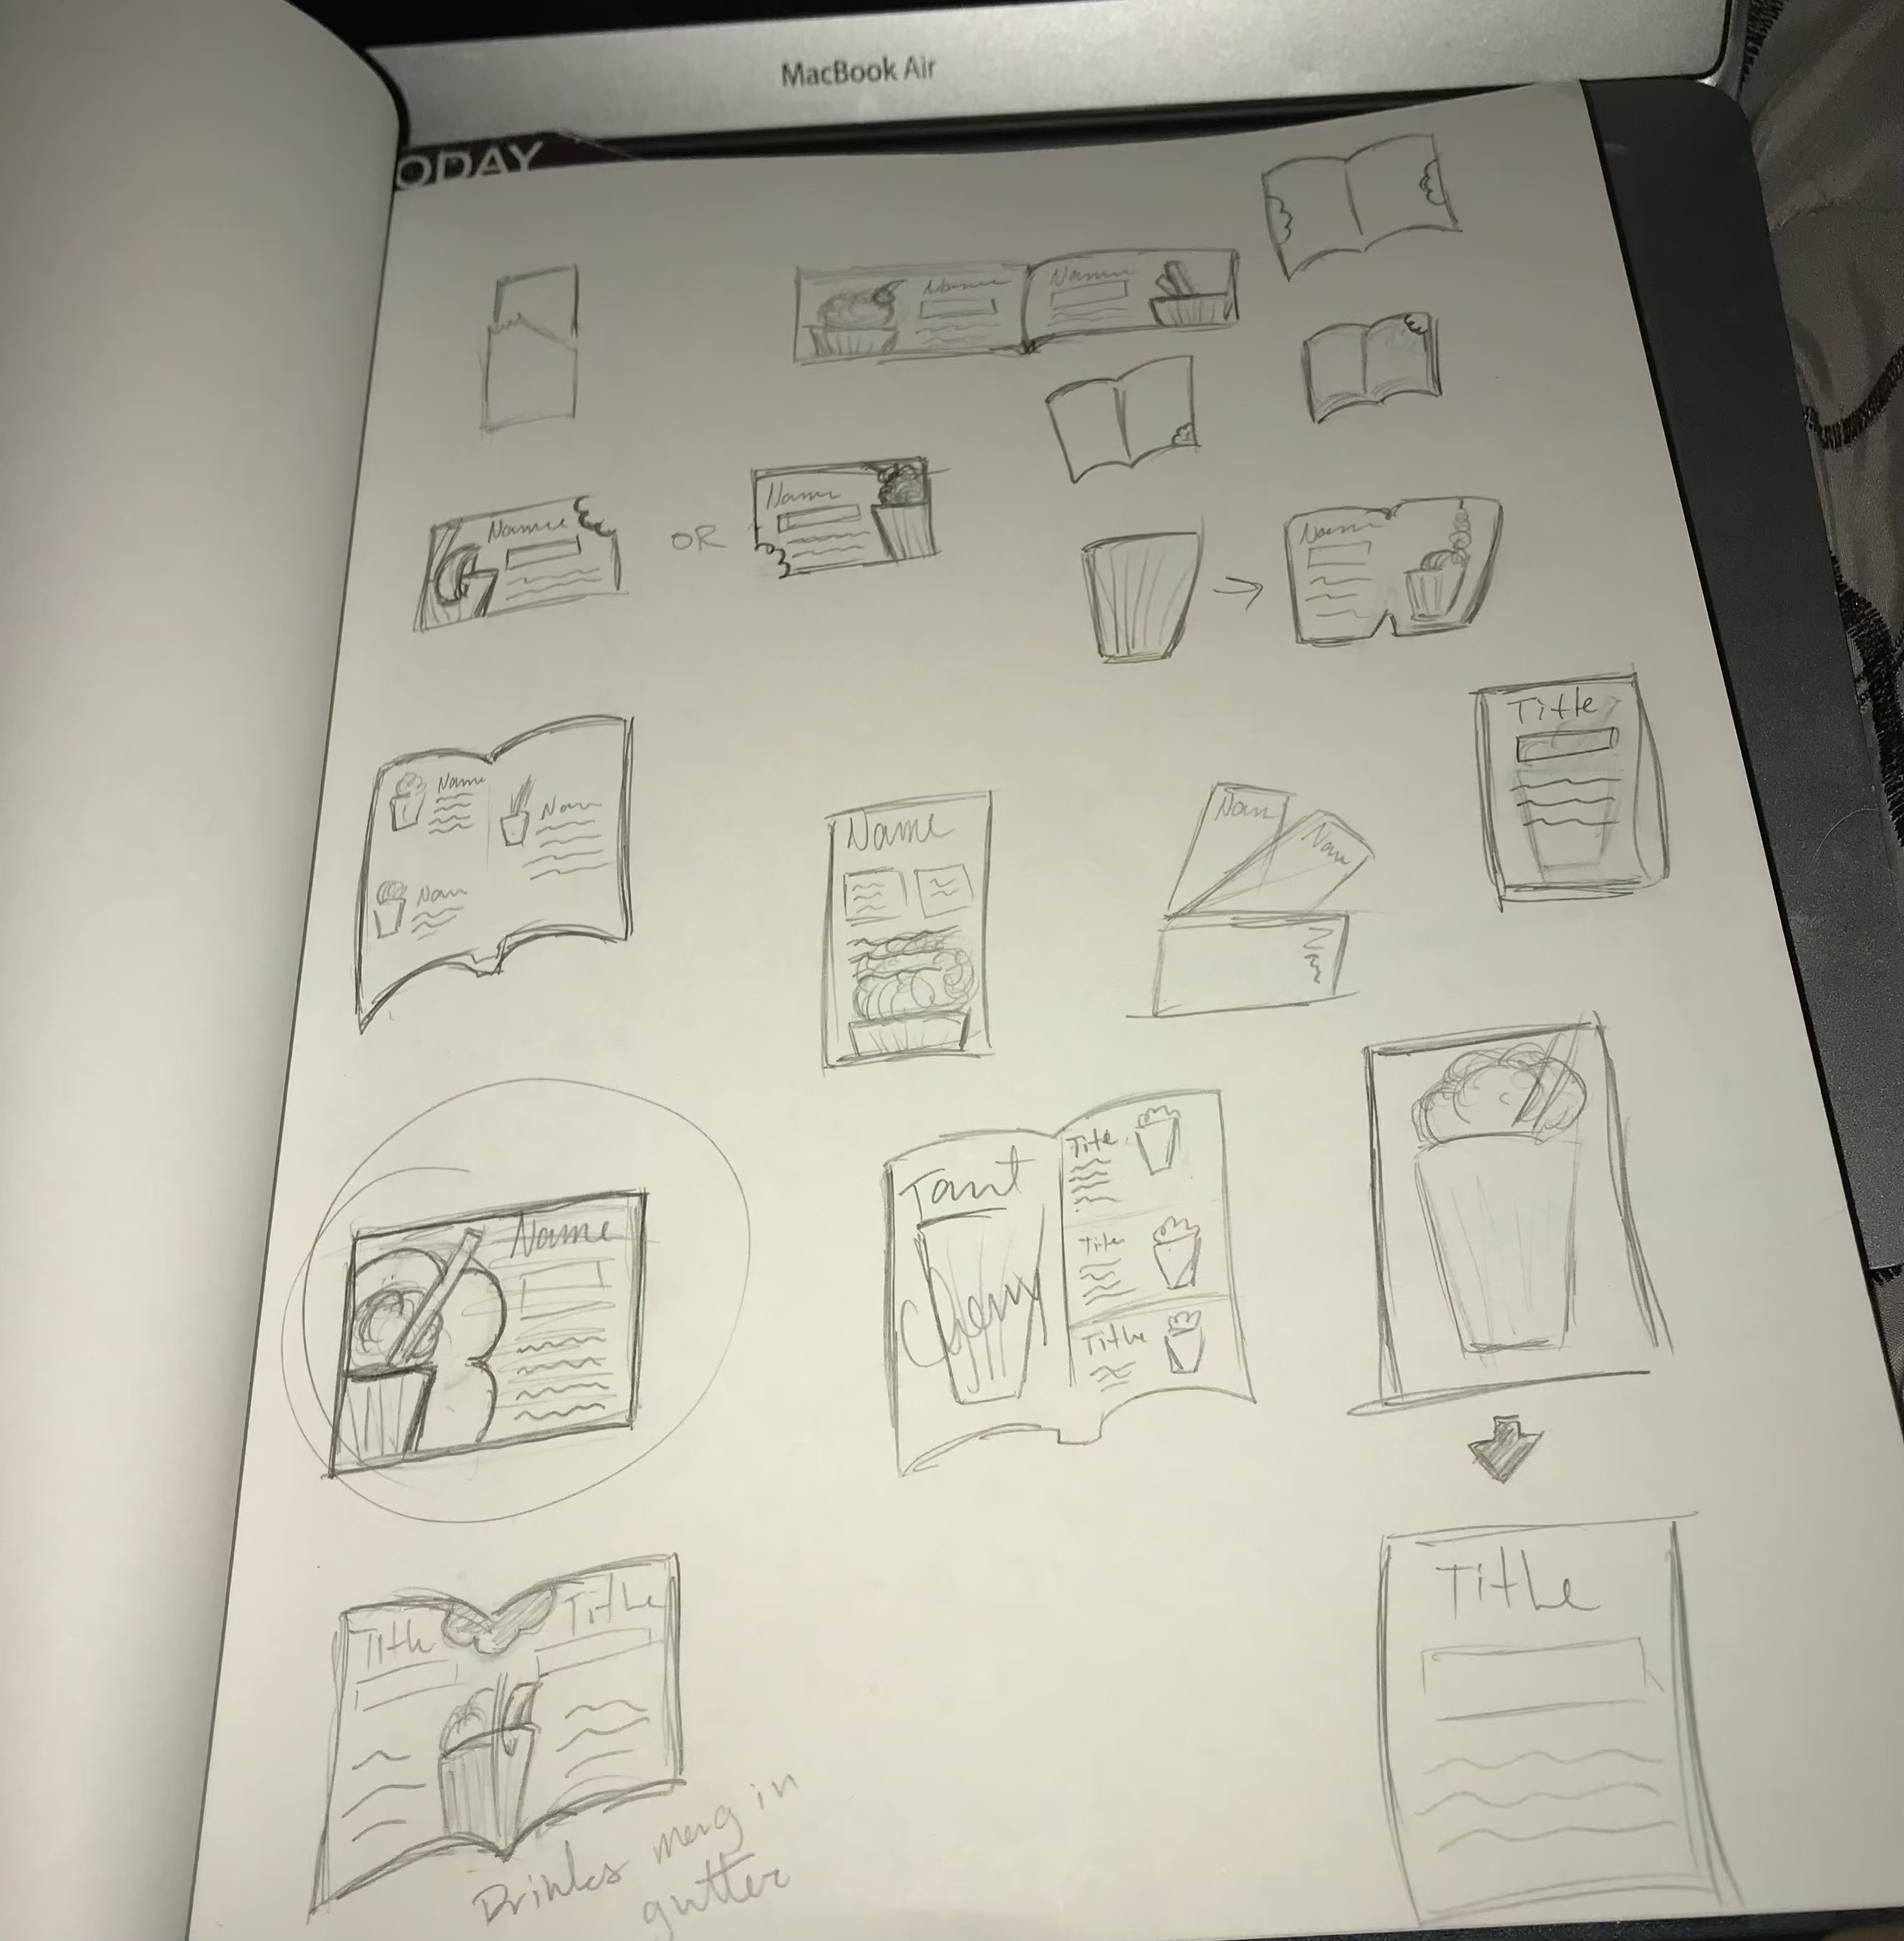 MacBook Air
ODAY
Name
Name
Name
OR
Name
Name
Title
Name
Nam
Nam
Name
Nam
Nam
Name
Tart
Cherry
Title
Title
Title
Title
Title
Drinks merg in
gutter
Title